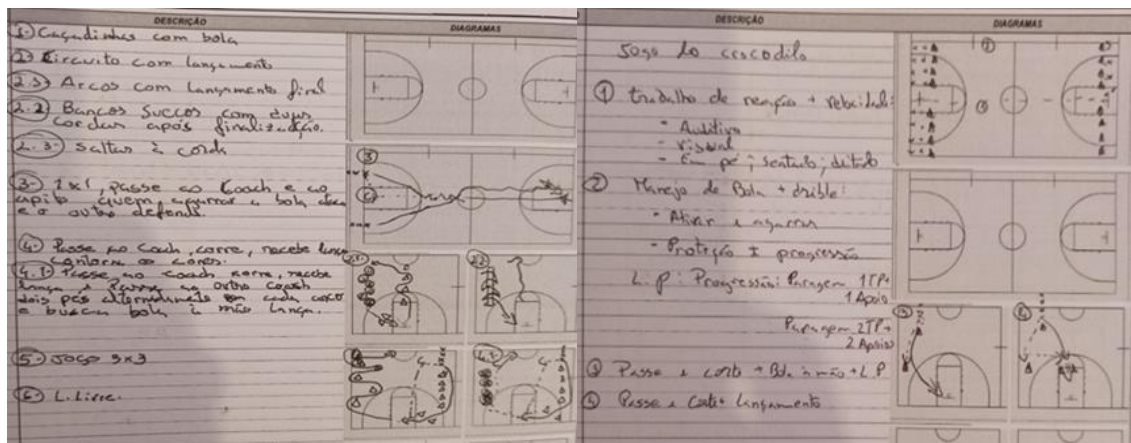 DESCRIÇÃO
DIAGRAMAS
1-) Caçadinhas com bola
2-) Circuito com lançamento
2.1-) Arcos com Lançamento final
2.2-) Bancos Suecos com duas
cordas após finalização.
2.3-) Saltar à corda
3-) 1x1, passe ao Coach e ao
apito quem agarrar a bola ataca
e o outro defende.
4-) Passe ao Coach, corre, recebe lança
contorna os cones.
4.1-) Passe ao coach corre, recebe
lança e Passe ao outro coach
dois pés alternadamente em cada arco
e buscar bola à mão lança.
5-) JOGO 3x3
6-) L. Livre.
3
C
2.1
2.2
4
4.1
DESCRIÇÃO
DIAGRAMAS
Jogo do crocodilo
1 trabalho de reação + velocidade:
- Auditiva
- Visual
- Em pé; sentado; deitado
2 Manejo de Bola + drible:
- Atirar e agarrar
- Proteção + progressão
L.P: Progressão: Paragem 1TP+
1 Apoio
Paragem 2TP+
2 Apoios
3 Passe e corte + Bola à mão + L.P
4 Passe e Corte + Lançamento
1
2
3
4